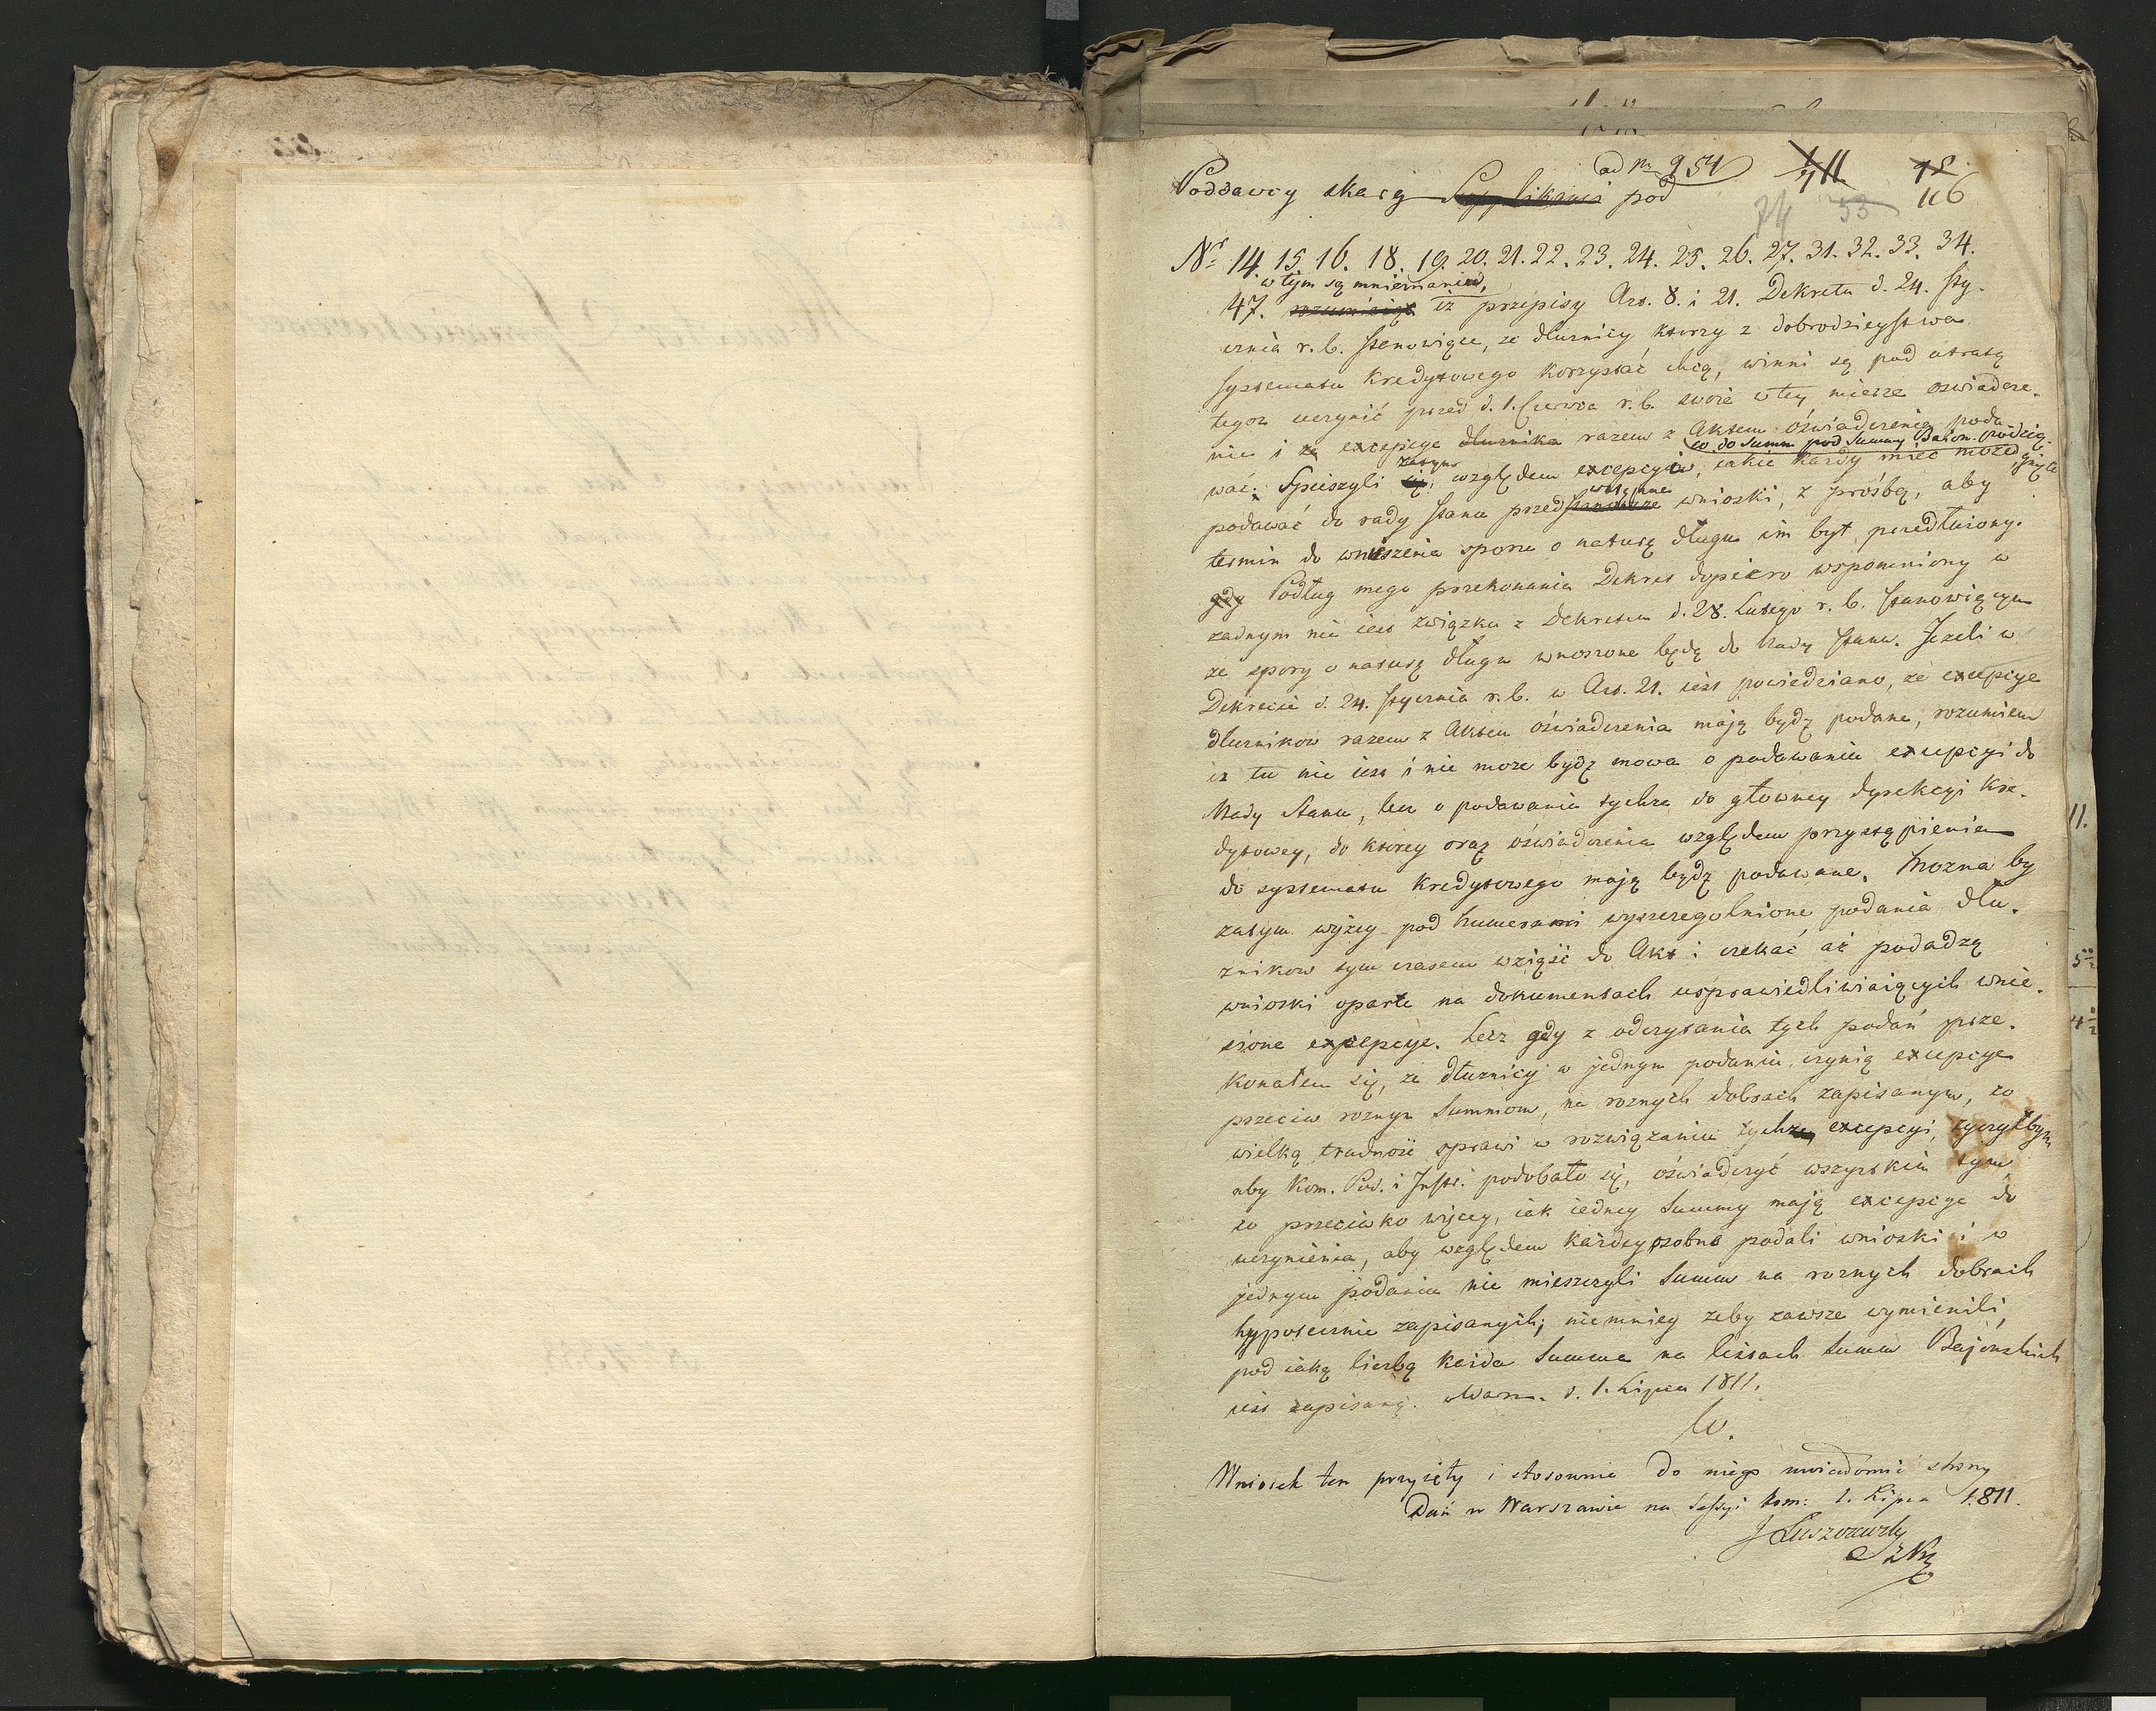 ad Nr 954
116
74 53
Poddawcy skarg Supplikanci pod
Nr 14. 15. 16. 18. 19. 20. 21. 22. 23. 24. 25. 26. 27. 31. 32. 33. 34.
w tym są mniemaniu,
47. iż przepisy Art. 8. i 21. Dekretu d. 24. Sty-
cznia r. b. stanowiące, że dłużnicy ktorzy z dobrodzieystwa
systematu kredytowego korzystać chcą, winni są pod utratą
tegoż uczynić przed d. 1. Czerwca r. b. swoie w tey mierze oswiadcze-
nie i excepcye dłużnika razem z Aktem oświadczenia poda-
co do Summ pod Summy Baion. podcią-
wać. Spieszyli zatym względem excepcyiów, iakie każdy mieć może,
podawać do rady stanu przed wstępne wnioski, z prośbą, aby
termin do wniszenia sporu o naturę długu im był przedłużony.
gdy Podług mego przekonania Dekret dopiero wspomniony w
żadnym nie iest związku z Dekretem d. 28. Lutego r. b. stanowiącym
że spory o naturę długu wnoszone będą do Rady stanu. Jeżeli w
Dekrecie d. 24. stycznia r. b. w Art. 21. iest powiedziano, że excepcye
dłużnikow razem z Aktem oświadczenia mają bydz podane, rozumiem
iż tu nie iest i nie może bydz mowa o podawaniu excepcyi do
Rady Stanu, lecz o podawaniu tychże do głowney dyrekcyi kre-
dytowey, do ktorey oraz oświadczenia względem przystąpienia
do systematu kredytowego mają bydz podawane. Można by
zatym wyżey pod Numerami wyszczegolnione podania dłu-
żnikow tym czasem wziąść do Akt i czekać aż podadzą
wnioski oparte na dokumentach usprawiedliwiaiących wnie-
sione excepcye. Lecz gdy z odczytania tych podań prze-
konałem się, że dłużnicy w jednym podaniu czynią excepcye
przeciw roznym Summom, na roznych dobrach zapisanym, co
wielką trudność sprawi w rozwiązaniu tychże excepcyi, życzyłbym
aby Kom. Pod. i Instr. podobało się, oświadczyć wszystkim tym
co przeciwko więcey, iak iedney Summy mają excepcye do
uczynienia, aby względem każdey osobne podali wnioski i w
jednym podaniu nie mieszczyli Summ na roznych dobrach
hypotecznie zapisanych; niemniey żeby zawsze wymienili,
pod iaką liczbą każda Summa na listach Summ Bajońskich
iest zapisaną. Warsz. d. 1. Lipca 1811.
Wniosek ten przyięty i stosownie do niego uwiadomić strony
Dań w Warszawie na Sessyi Kom: 1. Lipca 1811.
J Łuszczewski